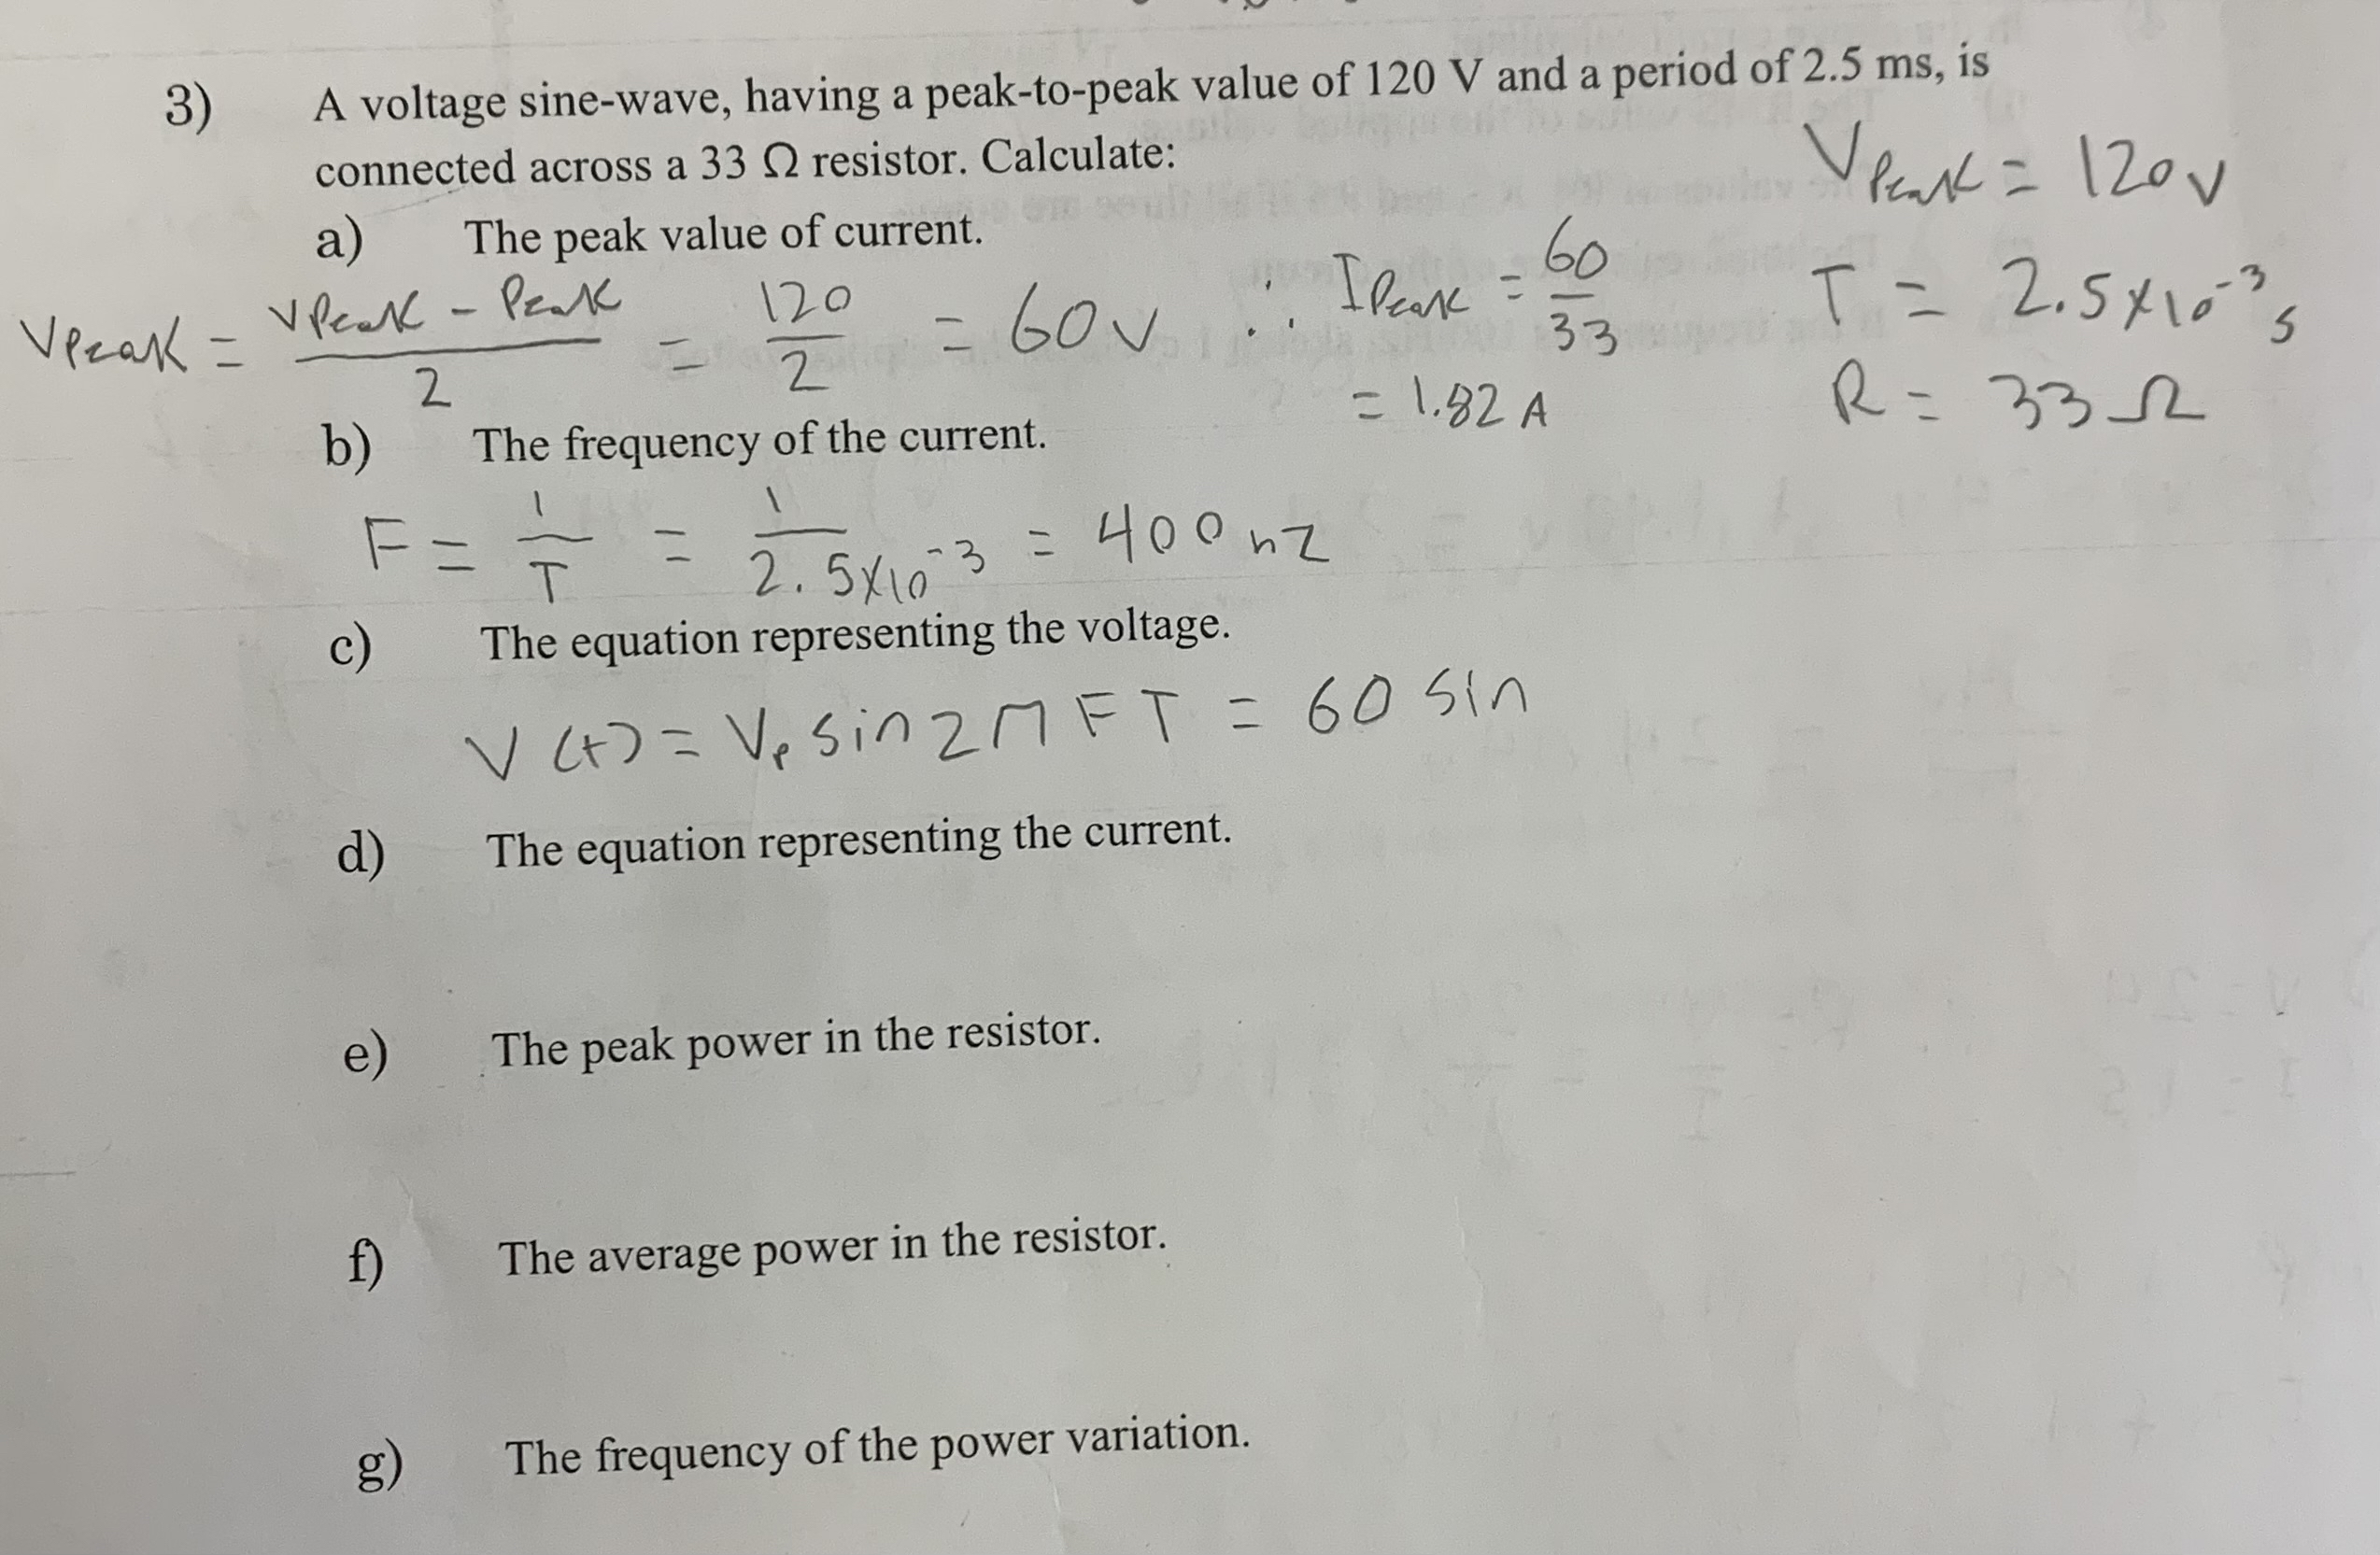 3) A voltage sine-wave, having a peak-to-peak value of 120 V and a period of 2.5 ms, is
connected across a 33 Ω resistor. Calculate:
VPeak = 120v
T = 2.5x10⁻³ s
R = 33 Ω
a) The peak value of current.
VPeak = VPeak - Peak / 2 = 120 / 2 = 60v ∴ IPeak = 60 / 33
= 1.82 A
b) The frequency of the current.
F = 1 / T = 1 / 2.5x10⁻³ = 400hz
c) The equation representing the voltage.
V(t) = Vp sin 2π F T = 60 sin
d) The equation representing the current.
e) The peak power in the resistor.
f) The average power in the resistor.
g) The frequency of the power variation.